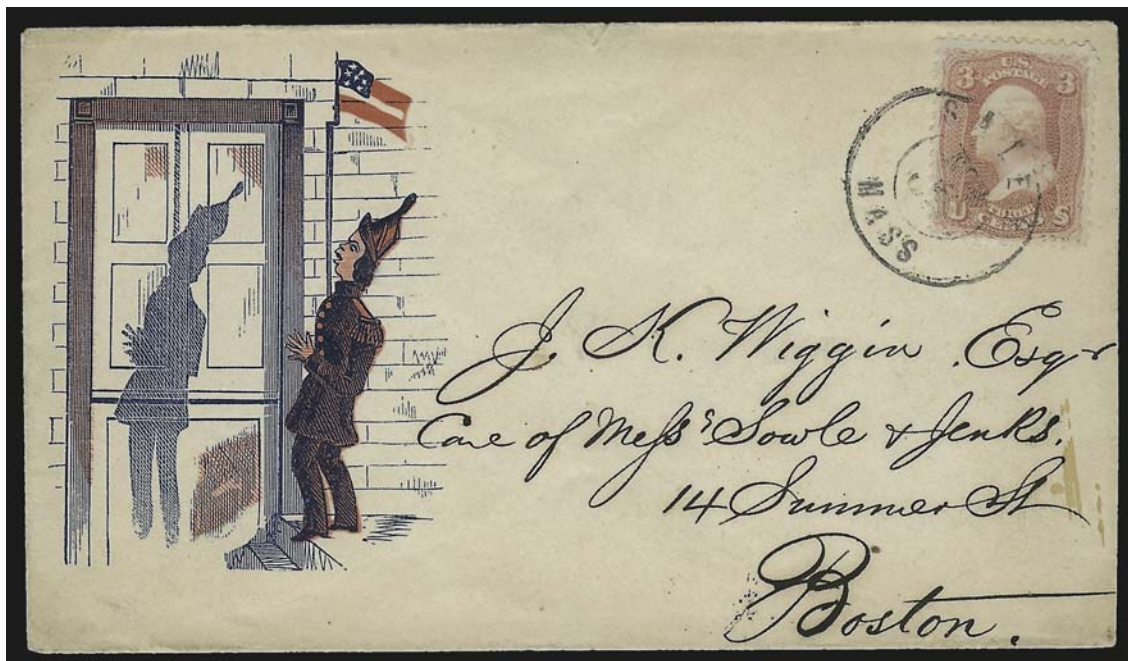 3 U.S. 3
POSTAGE
U CENTS S
MASS
J. K. Wiggin Esqr
Care of Messrs Sowle & Jenks.
14 Summer St
Boston.